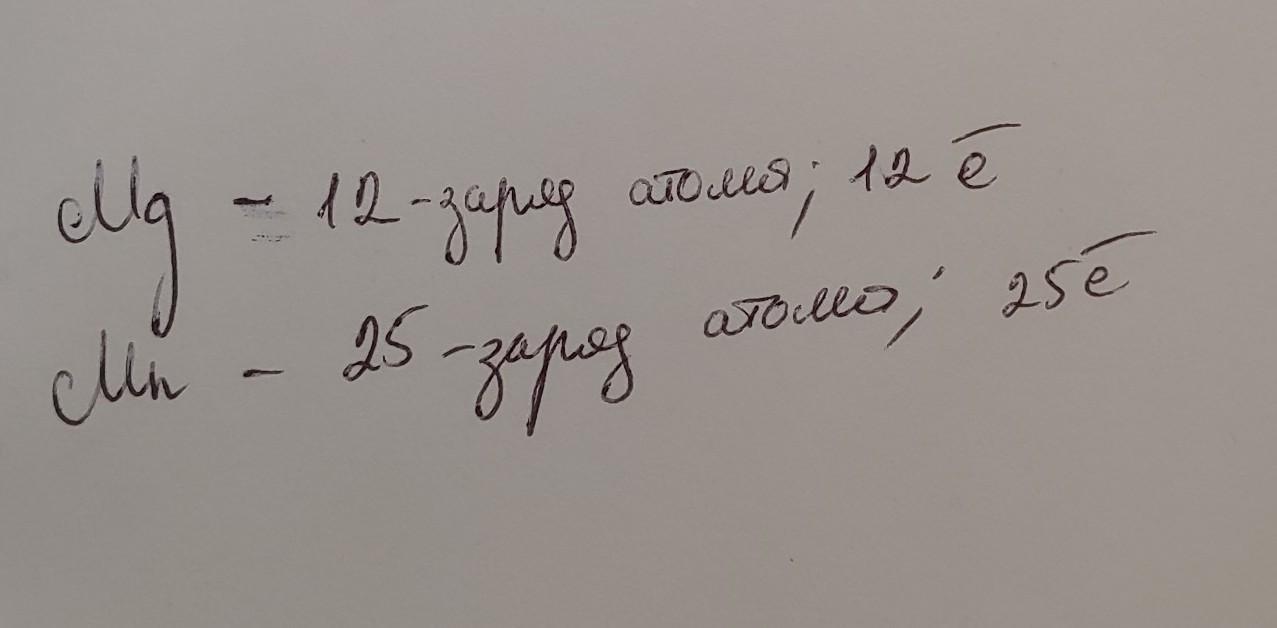 Mg - 12 - заряд атома; 12 ē
Mn - 25 - заряд атома; 25 ē